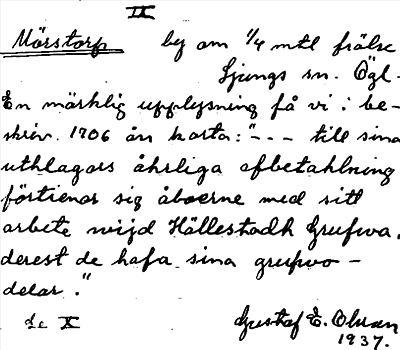 IX
Mörstorp by om 1/4 mtl frälse
Ljungs sn. Ögl.
En märklig upplysning få vi i be-
skriv. 1706 års karta: "--- till sina
uthlagors åhrliga afbetahlning
förtienar sig åboerne med sitt
arbete wijd Hällestadh Grufwa.
derest de hafa sina grufwo-
delar."
Se X Gustaf E. Olsson
1937.